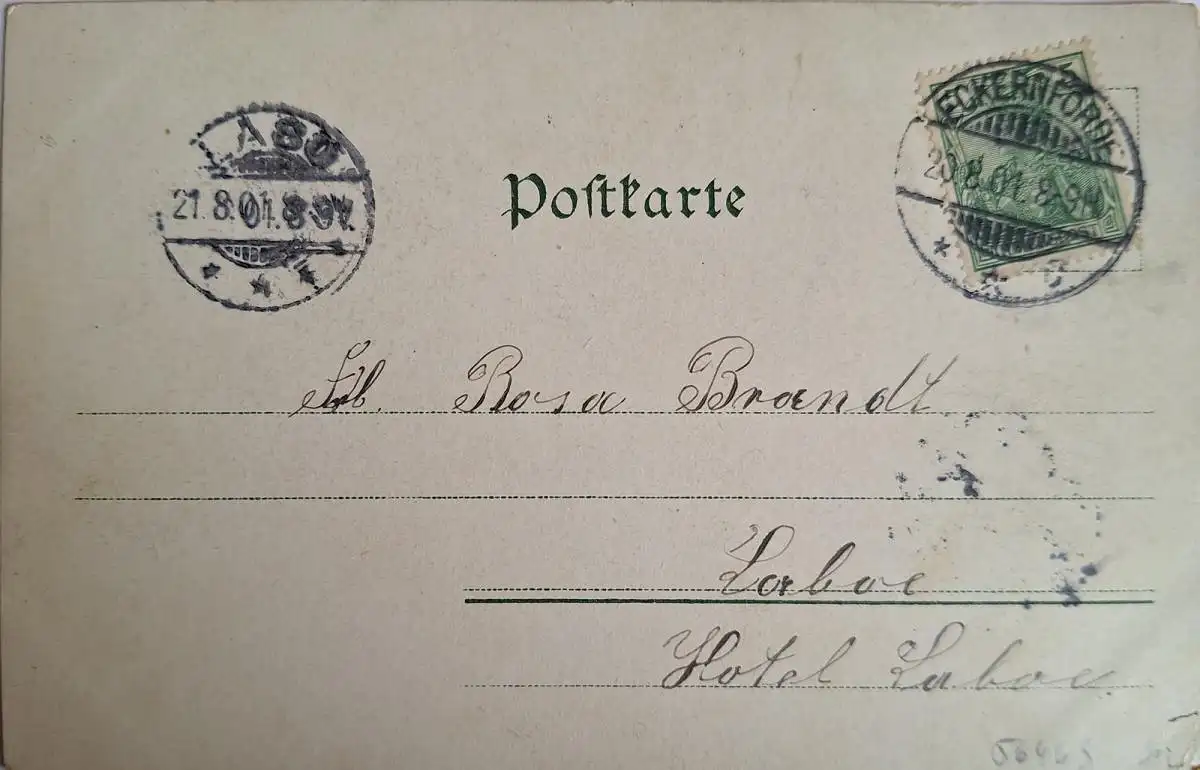 LABO
21.8.01.8-9V.
Postkarte
ECKERNFÖRDE
20.8.01.8-9N
* * c
Frl. Rosa Brandt
Laboe
Hotel Laboe